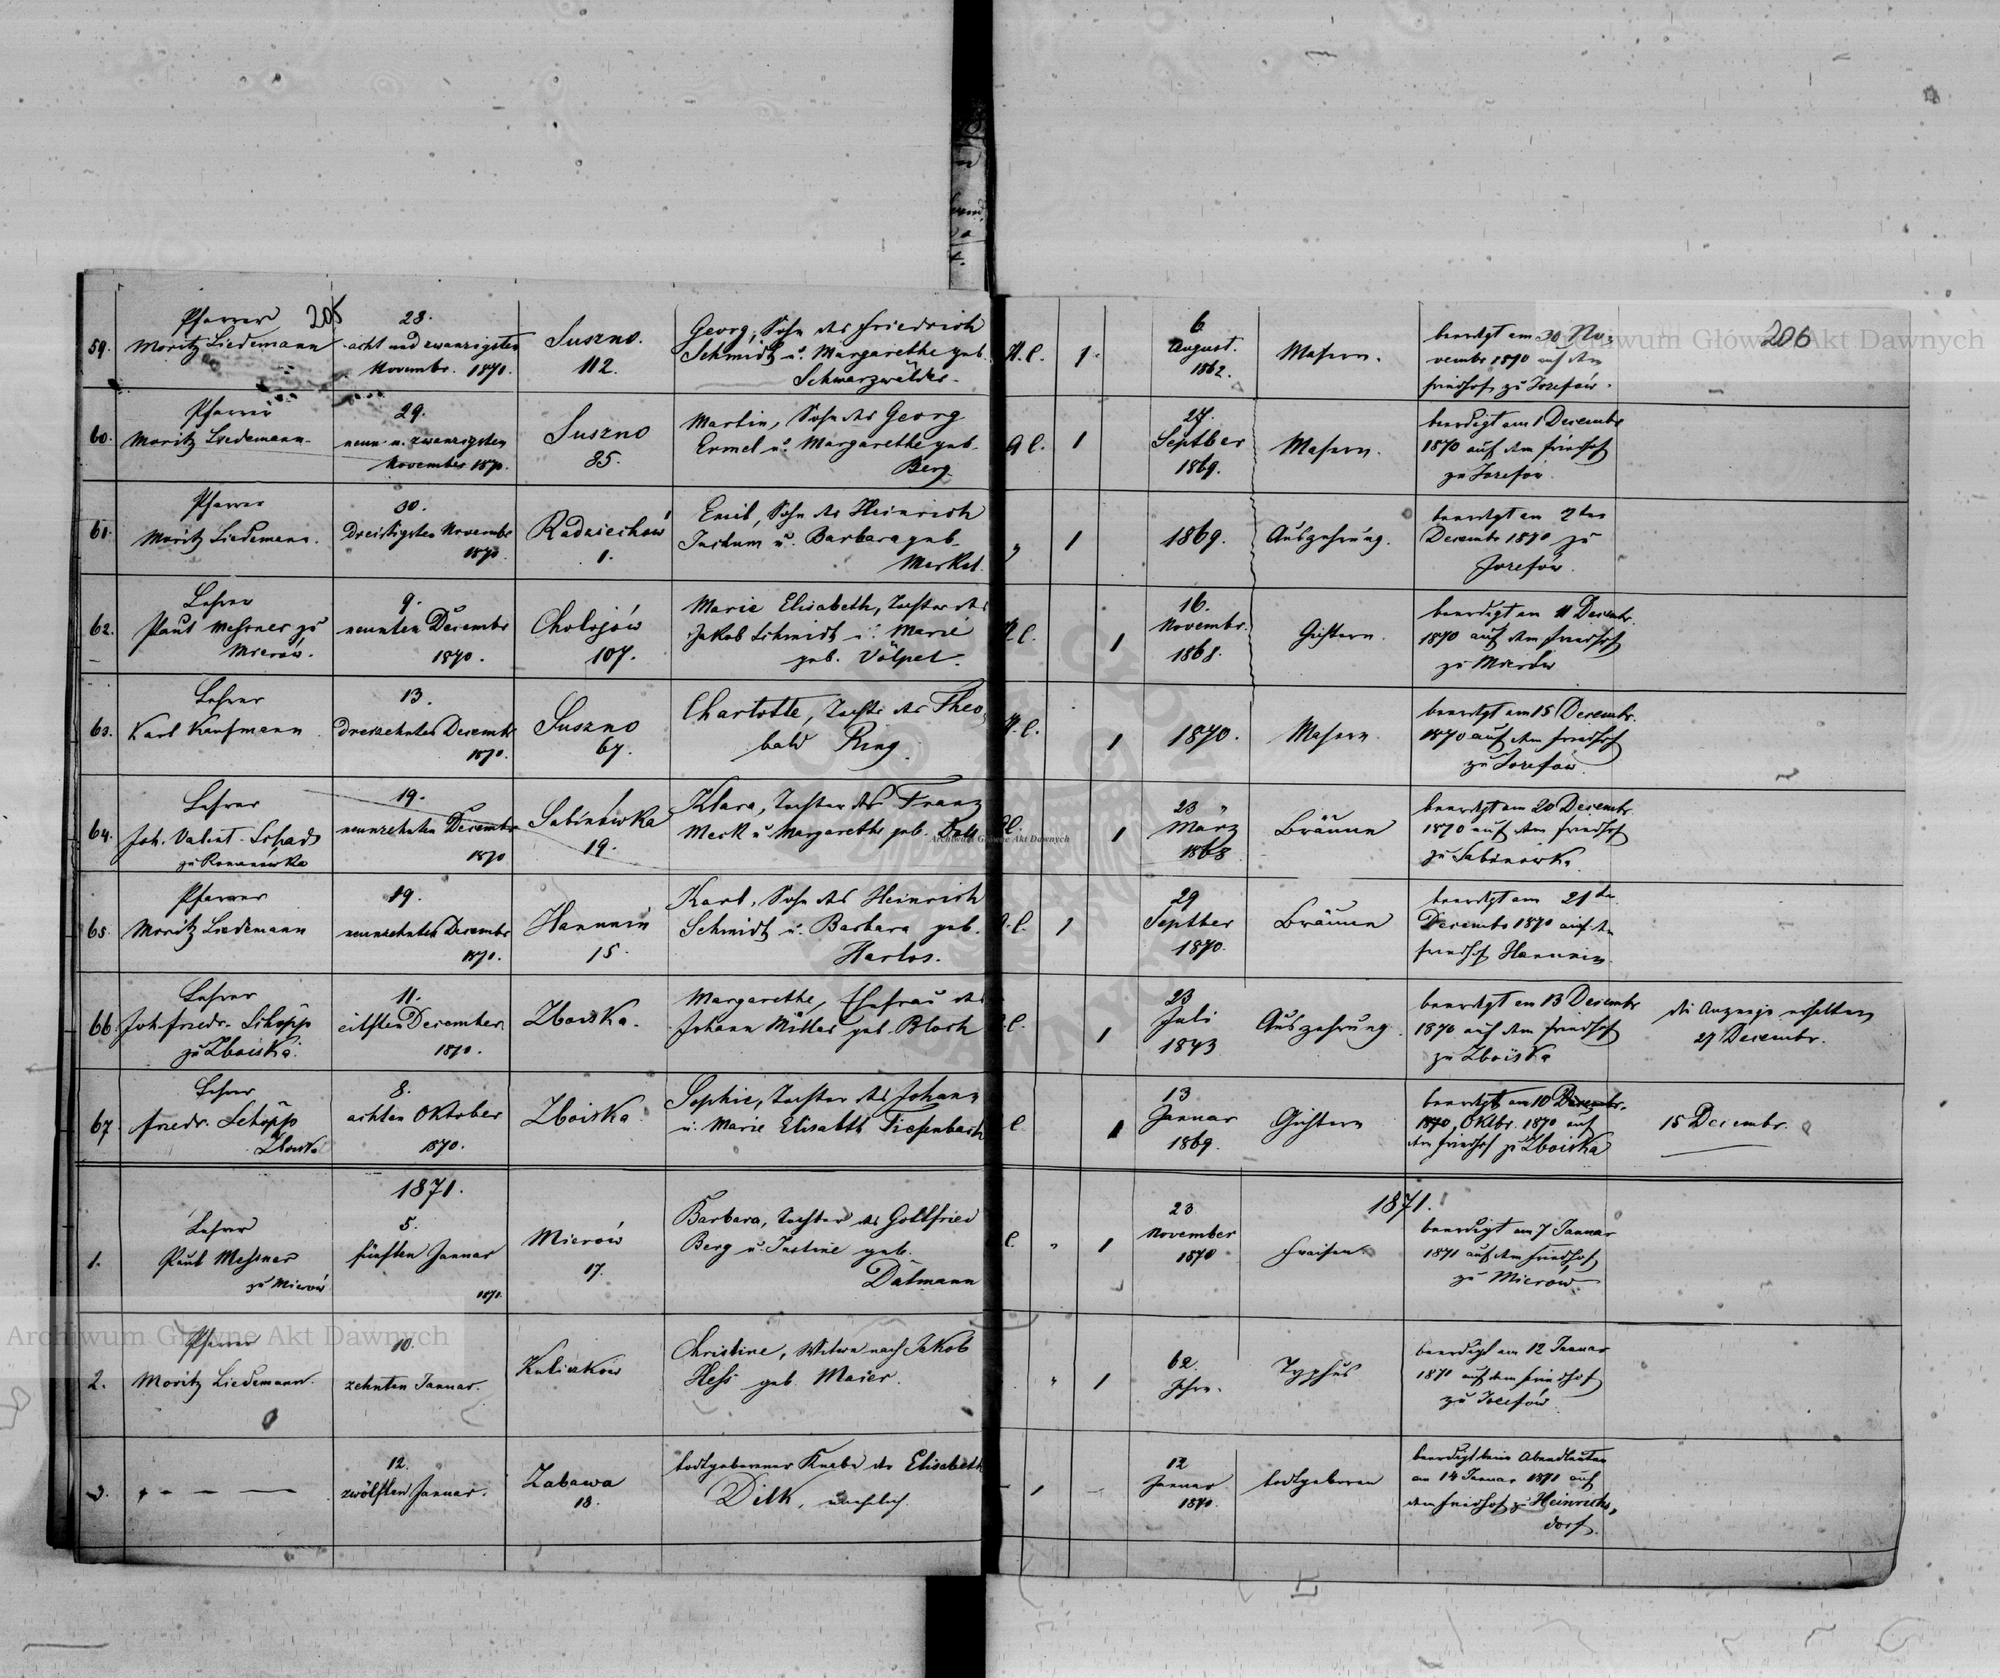 205
206
59.
Pfarrer
Moritz Liedemann
28.
acht und zwanzigsten
Novembr. 1870.
Suszno.
112.
Georg, Sohn des Friedrich
Schmidt u. Margarethe geb.
Schwarzwälder.
A. C.
1.
6
August.
1862.
Masern.
beerdigt am 30 No-
vembr 1870 auf dem
Friedhof zu Josefów.
60.
Pfarrer
Moritz Liedemann.
29.
neun u. zwanzigsten
November 1870.
Suszno
85.
Martin, Sohn des Georg
Ermel u. Margarethe geb.
Berg
A C.
1
27.
Septber
1869.
Masern.
beerdigt am 1 Decembr
1870 auf dem Friedhof
zu Josefów.
61.
Pfarrer
Moritz Liedemann.
30.
Dreisigsten Novembr
1870.
Radziechów
1.
Emil, Sohn des Heinrich
u. Barbara geb.
Merkel.
"
1
1869.
Auszehrung.
beerdigt am 2ten
Decembr 1870 zu
Josefów.
62.
Lehrer
Paul Messner zu
Mierów.
9.
neunten Decembr
1870.
Cholojów
107.
Marie Elisabeth, Tochter des
Jakob Schmidt u. Marie
geb. Völpel.
A. C.
1
16.
Novembr.
1868.
Gichtern.
beerdigt am 11 Decembr.
1870 auf dem Friedhof
zu Mierów
63.
Lehrer
Karl Kaufmann
13.
dreizehnten Decembr
1870.
Suszno
67.
Charlotte, Tochter des Theo-
bald Ring.
A. C.
1
1870.
Masern.
beerdigt am 15 Decembr.
1870 auf dem Friedhof
zu Josefów.
64.
Lehrer
Joh. Valent. Schad
zu Romanówka
19.
neunzehnten Decembr
1870
Sabinówka
19.
Klara, Tochter des Franz
Meck u Margarethe geb.
1
23 "
März
1868
Bräune
beerdigt am 20 Decembr.
1870 auf dem Friedhof
zu Sabinówka
65.
Pfarrer
Moritz Liedemann
19.
neunzehnten Decembr
1870.
Hannuin
15.
Karl, Sohn des Heinrich
Schmidt u. Barbara geb.
Harlos.
1
29
Septber
1870.
Bräune
beerdigt am 21ten
Decembr 1870 auf dem
Friedhof Hannuin.
66
Lehrer
Joh. Friedr. Schöpp
zu Zboiska.
11.
eilften December.
1870.
Zboiska.
Margarethe, Ehefrau des
Johann Müller geb. Bloch
1
23
Juli
1843
Auszehrung.
beerdigt am 13 Decembr
1870 auf dem Friedhof
zu Zboiska
die Anzeige erhalten
27 Decembr.
67
Lehrer
Friedr. Schöpp
Zboiska
8.
achten Oktober
1870.
Zboiska.
Sophie, Tochter des Johann
u. Marie Elisabth Tiefenbach
1
13
Januar
1869.
Gichtern
beerdigt am 10 Decembr.
1870, Oktbr. 1870 auf
dem Friedhof zu Zboiska
15 Decembr.
1871.
1871.
1.
Lehrer
Paul Messner
zu Mierów
5.
fünften Januar
1871.
Mierów
17.
Barbara, Tochter des Gottfried
Berg u. Justine geb.
Dalmann
"
1
23
November
1870
Fraisen.
beerdigt am 7 Januar
1871 auf dem Friedhof
zu Mierów.
2.
Pfarrer
Moritz Liedemann.
10.
zehnten Januar.
Kulików
Christine, Witwe nach Jakob
Hess geb. Maier.
"
1
62.
Jahre.
Typhus
beerdigt am 12 Januar
1871 auf dem Friedhof
zu Josefów
3.
12.
zwölften Januar.
Zabawa
18.
todtgeborener Knabe der Elisabeth
Dilk, unehelich.
1
12
Januar
1870.
todtgeboren
beerdigt beim Abendläuten
am 14 Januar 1871 auf
dem Friedhof zu Heinrichs-
dorf.
Archiwum Główne Akt Dawnych
Archiwum Główne Akt Dawnych
Archiwum Główne Akt Dawnych